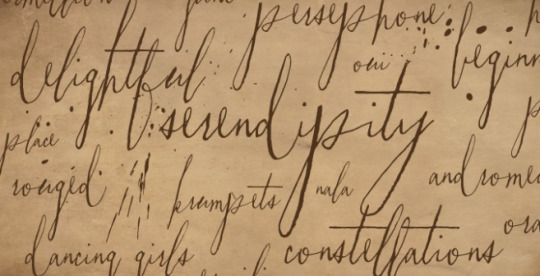 persephone
delightful oui beginn
serendipity
place
rouged krumpets nala androme
dancing girls constellations ora